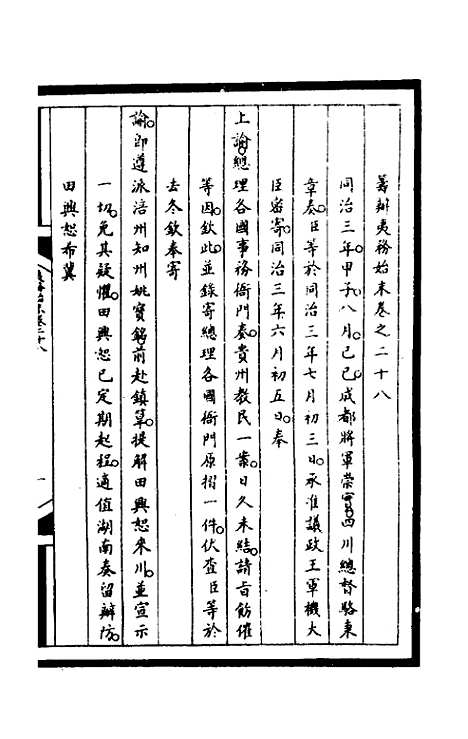 籌辦夷務始末卷之二十八
同治三年甲子八月己巳成都將軍崇實四川總督駱秉
章奏臣等於同治三年七月初三日承准議政王軍機大
臣密寄同治三年六月初五日奉
上諭總理各國事務衙門奏貴州教民一案日久未結請旨飭催
等因欽此並錄寄總理各國衙門原摺一件伏查臣等於
去冬欽奉寄
諭即遵派涪州知州姚寶銘前赴鎮筸提解田興恕來川並宣示
一切免其疑懼田興恕已定期起程適值湖南奏留辦防
田興恕希冀
卷二十八
一